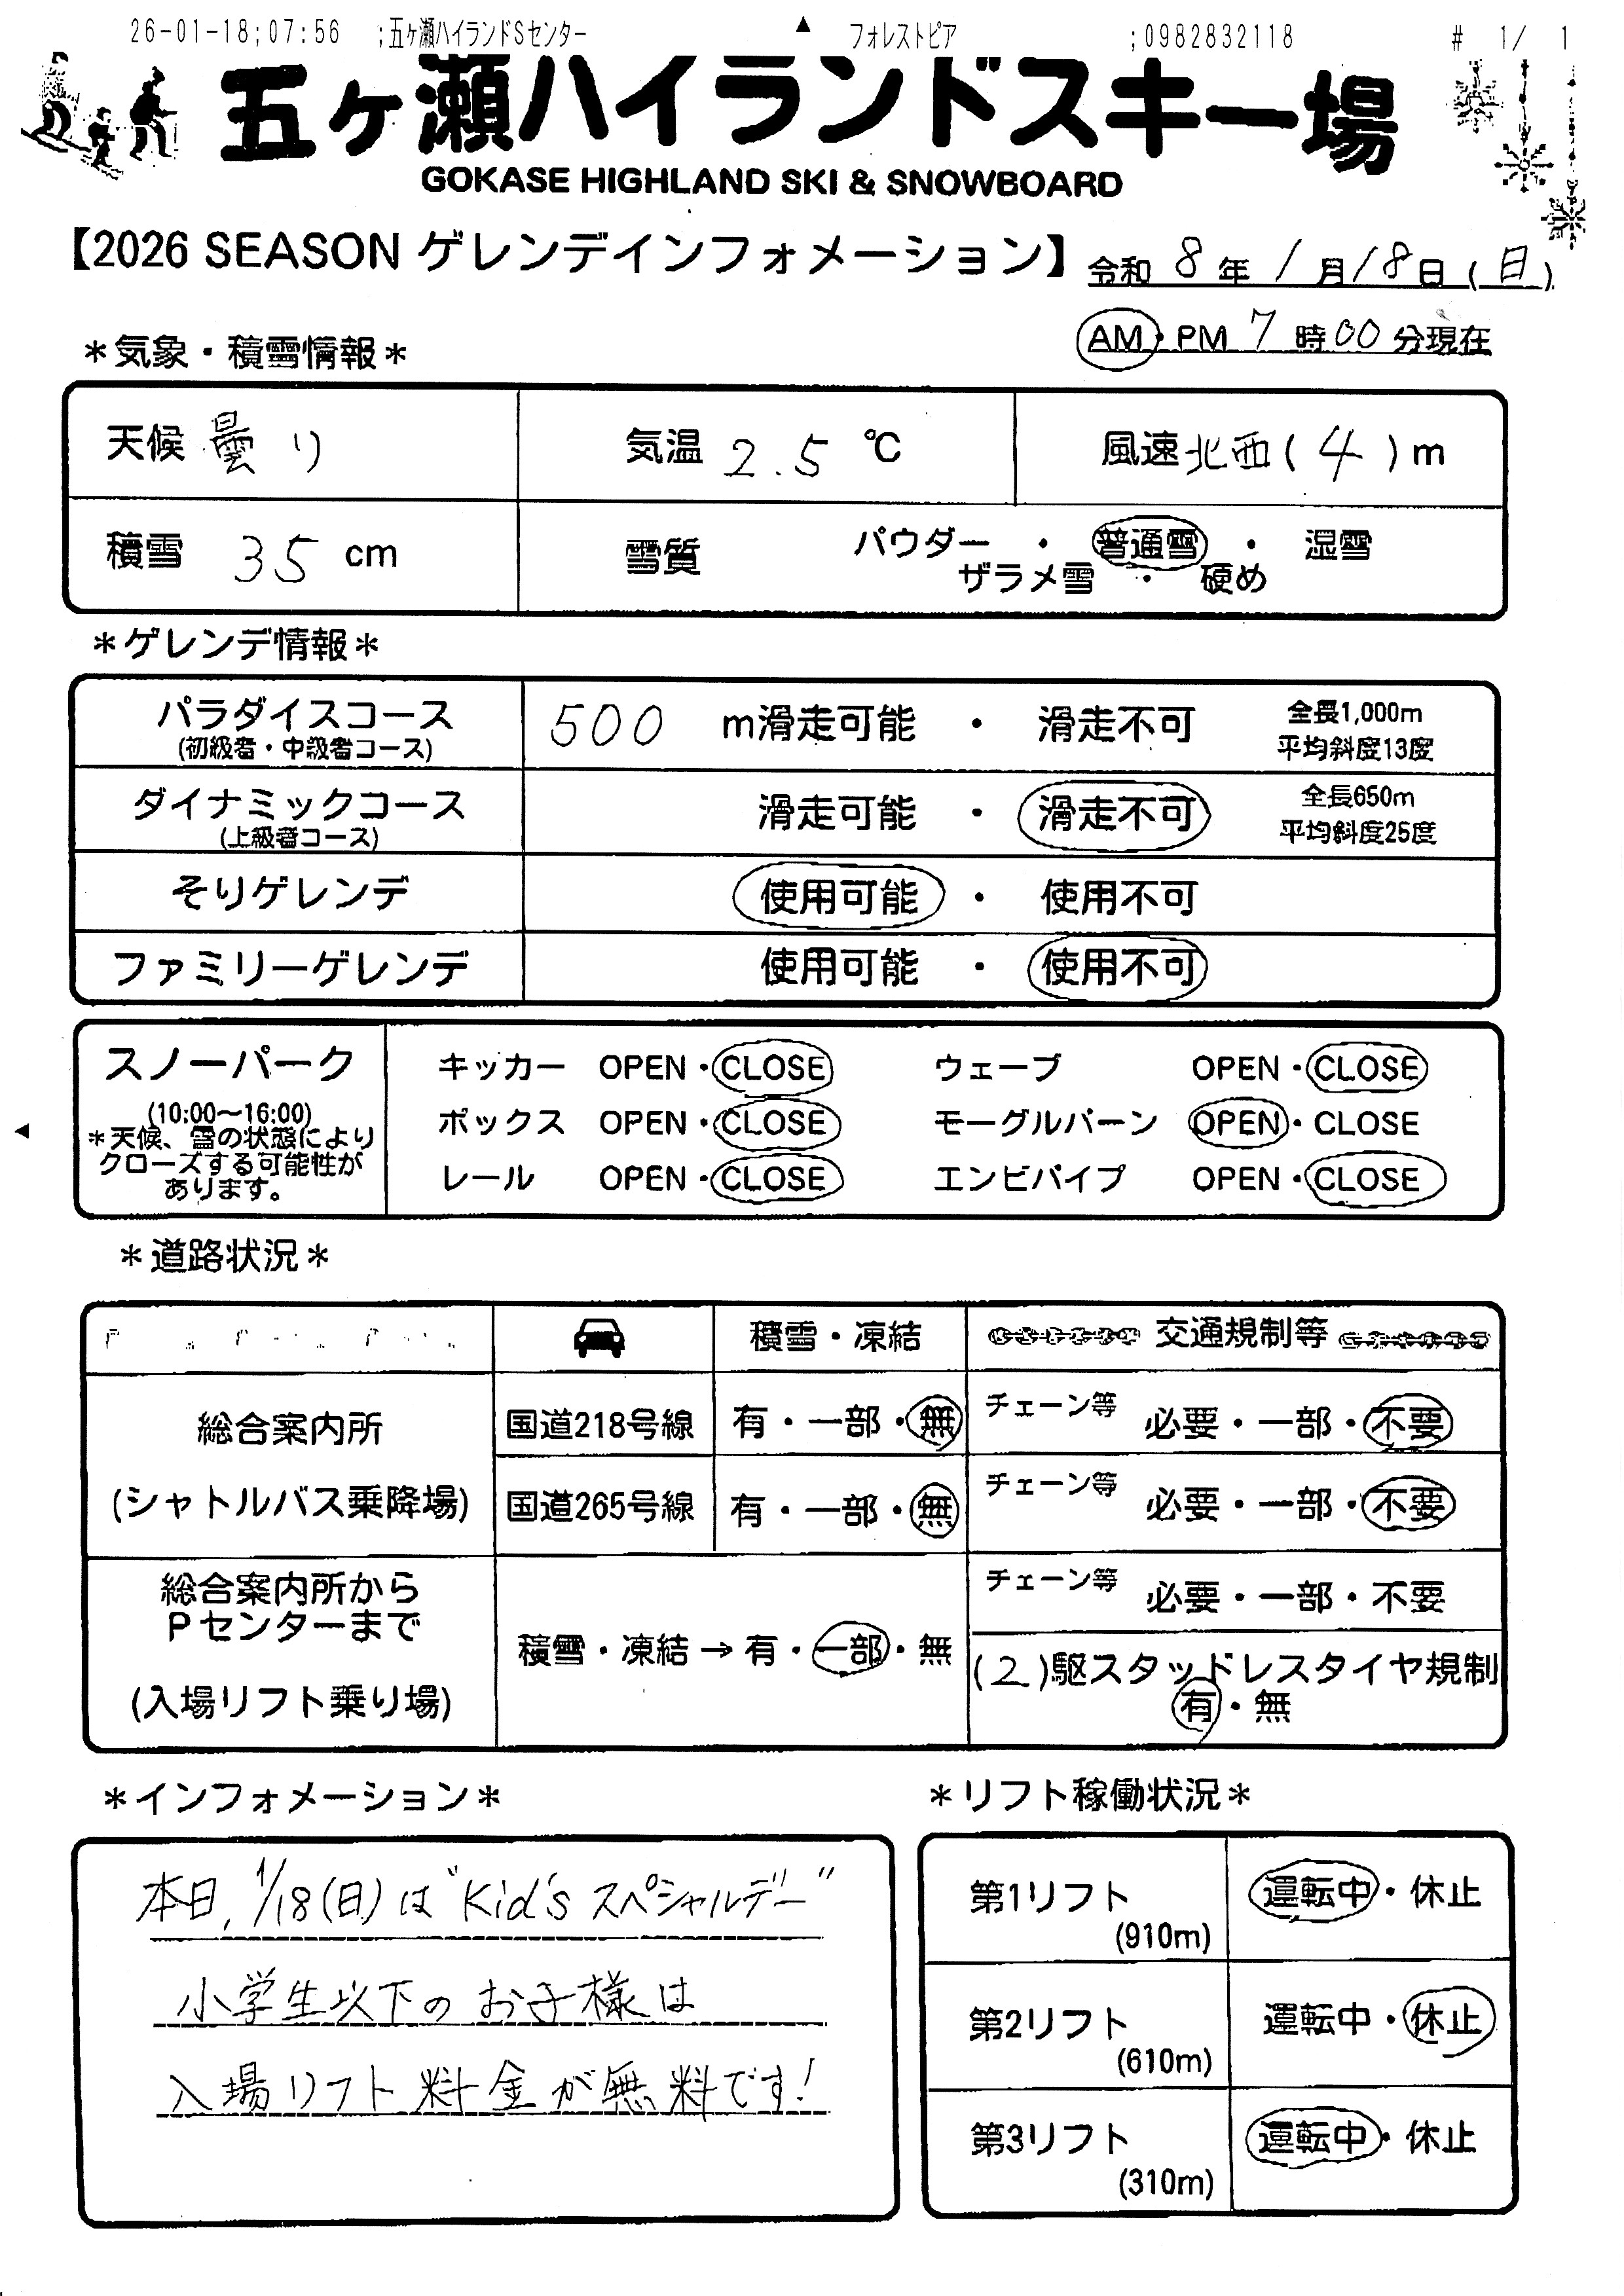 26-01-18;07:56 ;五ヶ瀬ハイランドSセンター フォレストピア ;0982832118 # 1/ 1
五ヶ瀬ハイランドスキー場
GOKASE HIGHLAND SKI & SNOWBOARD
【2026 SEASON ゲレンデインフォメーション】 令和 8 年 1 月 18 日 (日)
AM・PM 7 時 00 分現在
＊気象・積雪情報＊
天候 曇り 気温 2.5 ℃ 風速 北西 ( 4 ) m
積雪 35 cm 雪質 パウダー ・ 普通雪 ・ 湿雪
ザラメ雪 ・ 硬め
＊ゲレンデ情報＊
パラダイスコース 500 m滑走可能 ・ 滑走不可 全長1,000m
(初級者・中級者コース) 平均斜度13度
ダイナミックコース 滑走可能 ・ 滑走不可 全長650m
(上級者コース) 平均斜度25度
そりゲレンデ 使用可能 ・ 使用不可
ファミリーゲレンデ 使用可能 ・ 使用不可
スノーパーク キッカー OPEN・CLOSE ウェーブ OPEN・CLOSE
(10:00～16:00)
＊天候、雪の状態により ボックス OPEN・CLOSE モーグルバーン OPEN・CLOSE
クローズする可能性が レール OPEN・CLOSE エンビパイプ OPEN・CLOSE
あります。
＊道路状況＊
積雪・凍結 交通規制等
総合案内所 国道218号線 有・一部・無 チェーン等 必要・一部・不要
(シャトルバス乗降場) 国道265号線 有・一部・無 チェーン等 必要・一部・不要
総合案内所から チェーン等 必要・一部・不要
Pセンターまで 積雪・凍結→有・一部・無
(入場リフト乗り場) (2)駆スタッドレスタイヤ規制
有・無
＊インフォメーション＊
本日、1/18(日)は"Kid's スペシャルデー"
小学生以下のお子様は
入場リフト料金が無料です!
＊リフト稼働状況＊
第1リフト 運転中・休止
(910m)
第2リフト 運転中・休止
(610m)
第3リフト 運転中・休止
(310m)